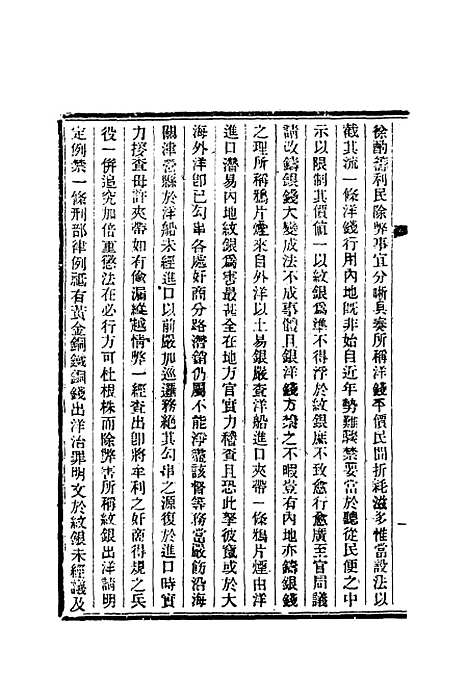 徐酌籌利民除弊事宜分晰具奏所稱洋錢平價民間折耗滋多惟當設法以
截其流一條洋錢行用內地既非始自近年勢難驟禁要當於聽從民便之中
示以限制其價值一以紋銀爲準不得浮於紋銀庶不致愈行愈廣至官局議
請改鑄銀錢大變成法不成事體且銀洋錢方禁之不暇豈有內地亦鑄銀錢
之理所稱鴉片煙來自外洋以土易銀嚴查洋船進口夾帶一條鴉片煙由洋
進口潛易內地紋銀爲害最甚全在地方官實力稽查且恐此拏彼竄或於大
海外洋卽已勾串各處奸商分路潛銷仍屬不能淨盡該督等務當嚴飭沿海
關津營縣於洋船未經進口以前嚴加巡邏務絕其勾串之源復於進口時實
力按查毋許夾帶如有偷漏縱越情弊一經查出卽將牟利之奸商得規之兵
役一併追究加倍重懲法在必行方可杜根株而除弊害所稱紋銀出洋請明
定例禁一條刑部律例祗有黃金銅鐵銅錢出洋治罪明文於紋銀未經議及